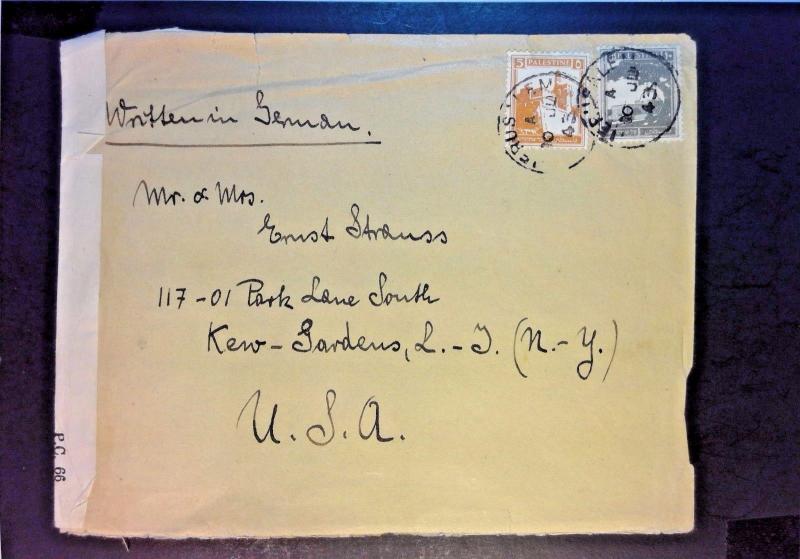 5 PALESTINE ٥
PALESTINE
JERUSALEM
10 JU
43
Written in German.
Mr. & Mrs.
Ernst Strauss
117-01 Park Lane South
Kew-Gardens, L.-I. (N.-Y.)
U.S.A.
P.C. 66